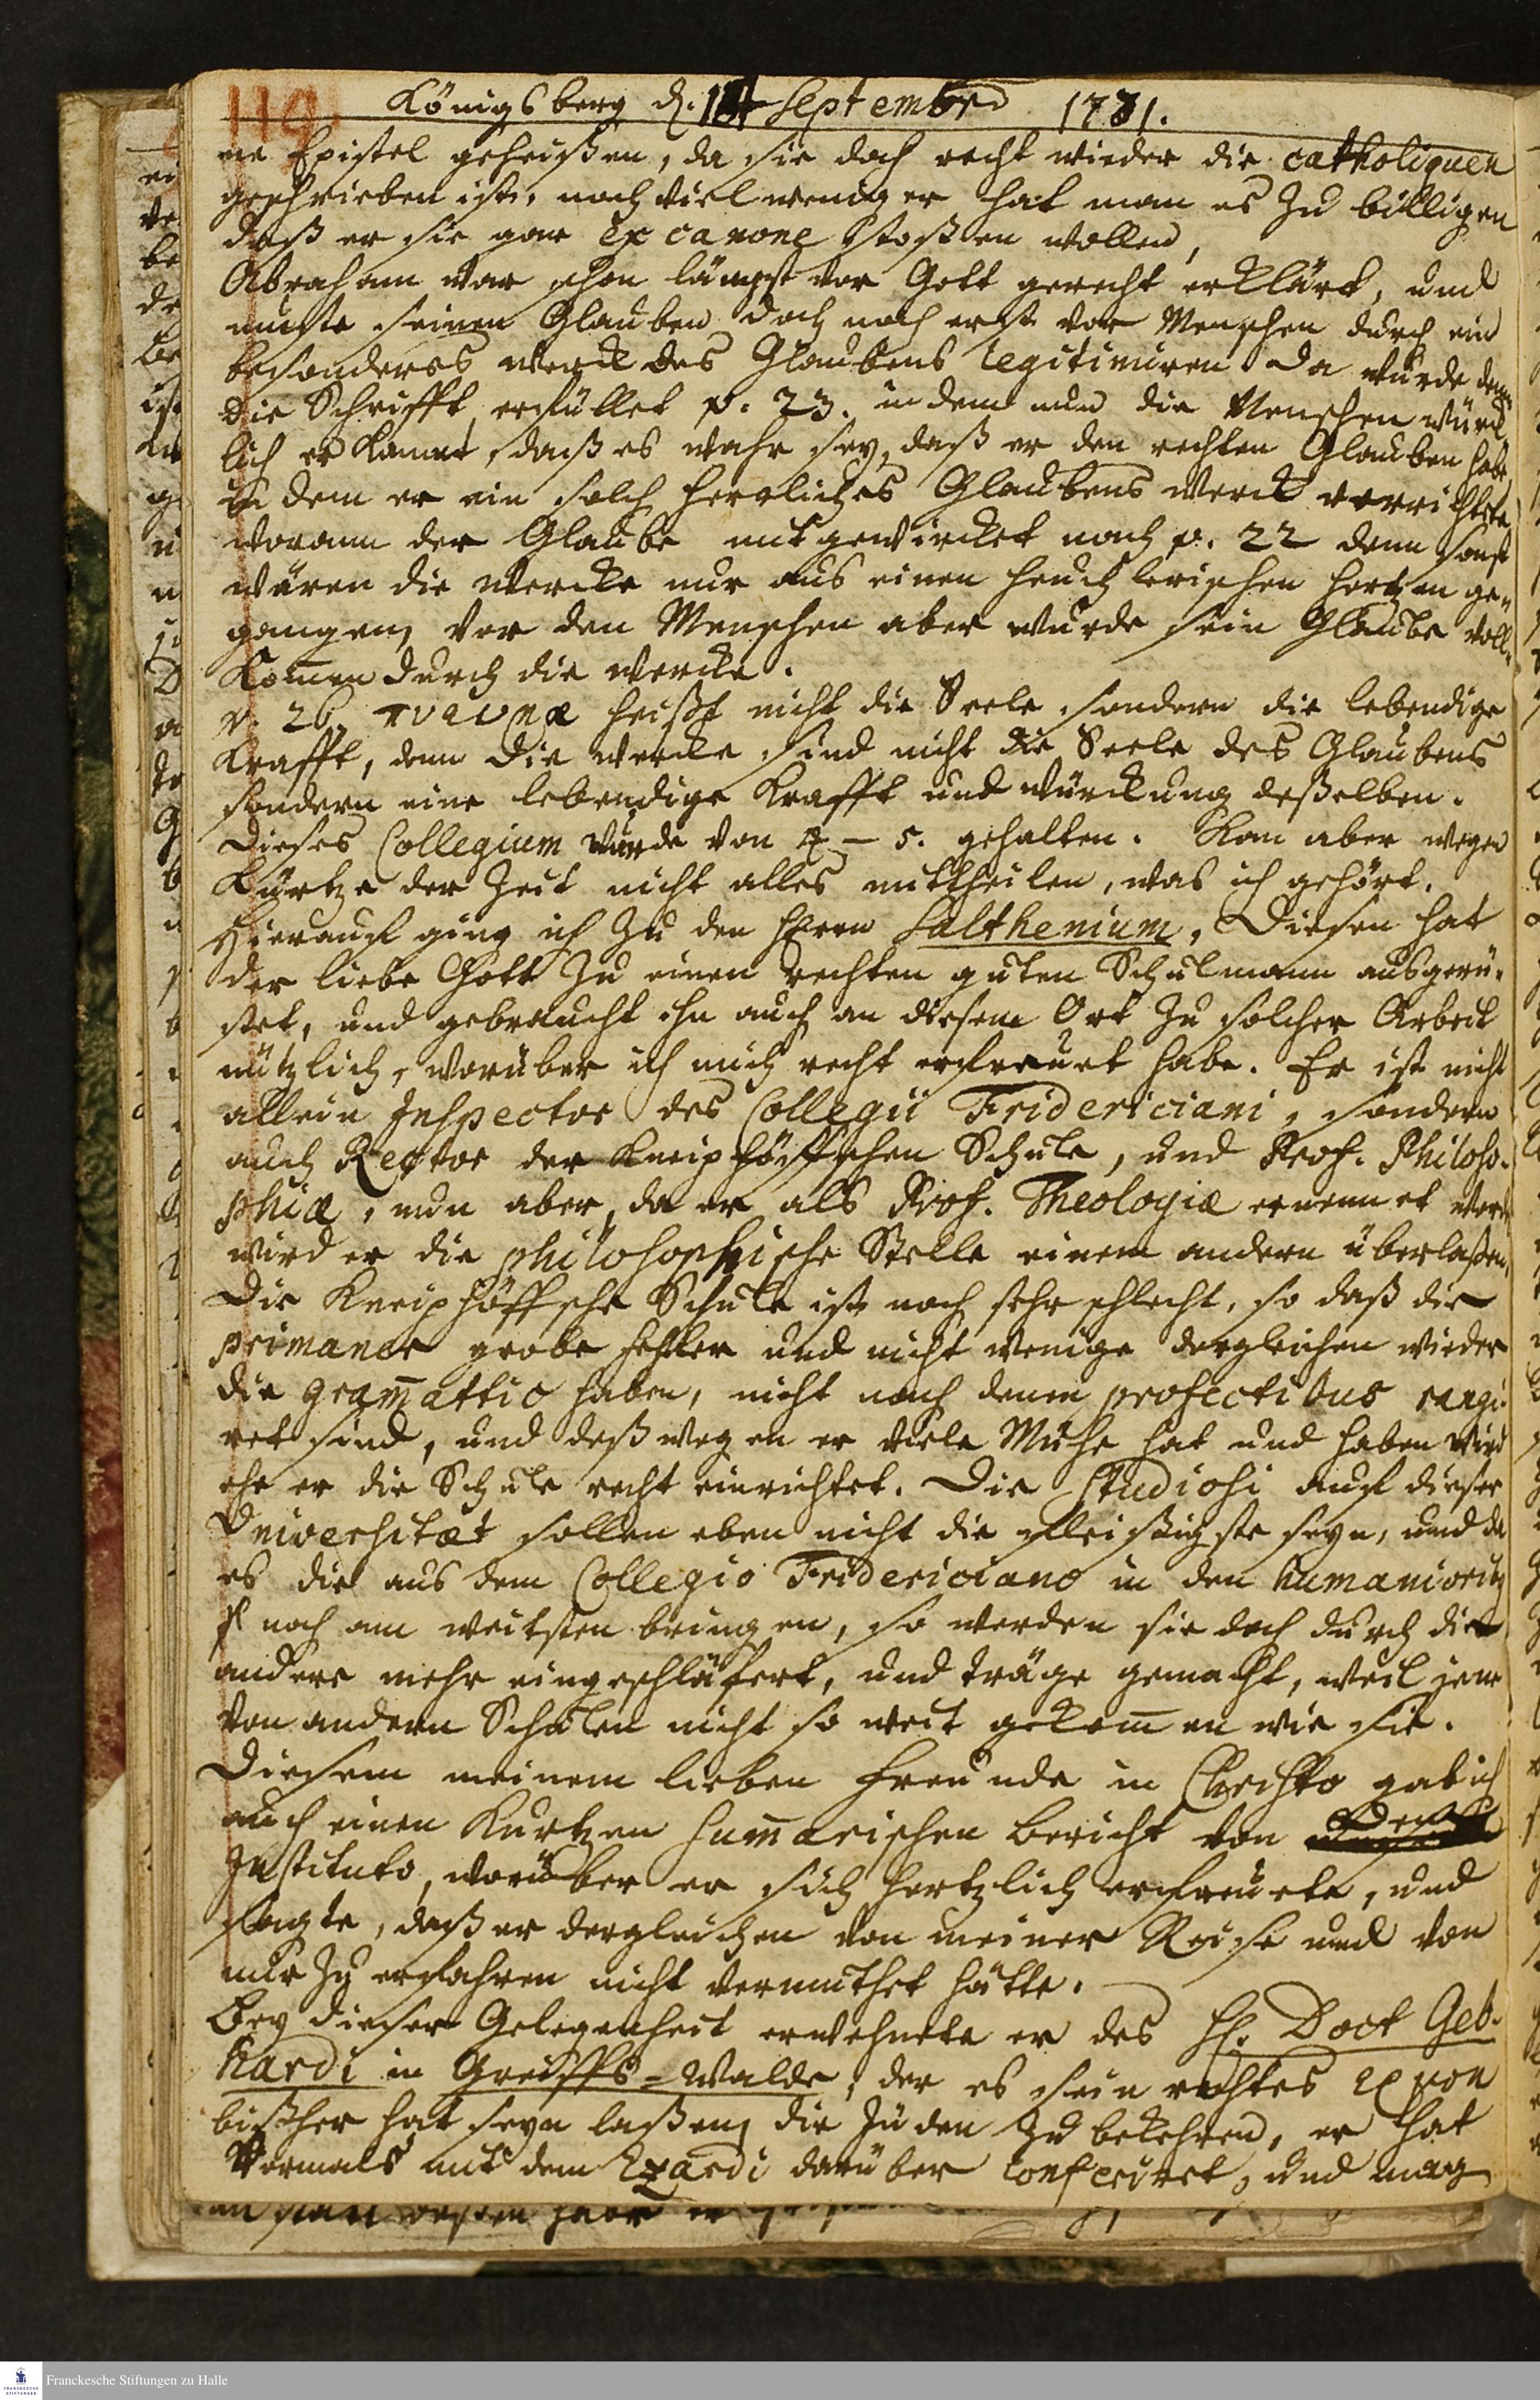 119. Königsberg d. 14 Septembr 1731.
ne Epistel geheißen, da sie doch recht wieder die catholiquen
geschrieben ist, noch viel weniger hat man es zu billigen
daß er sie gar ex canone stoßen wollen,
Abraham war schon längst vor Gott gerecht erklärt, und
muste seinen Glauben doch noch erst vor Menschen durch ein
besonderes werck des Glaubens legitimiren Da wurde denn
die Schrifft erfüllet v. 23. indem nun die Menschen würck
lich erkannt, daß es wahr sey, daß er den rechten Glauben habe,
in dem er ein solch herrliches Glaubens werck verrichtete
worann der Glaube mitgewircket nach v. 22 denn sonst
wären die wercke nur aus einen heuchlerischen hertzen ge-
gangen, vor den Menschen aber wurde sein Glaube voll-
kom̄en durch die wercke.
v. 26. heißt nicht die Seele sondern die lebendige
Krafft, denn die wercke sind nicht die Seele des Glaubens
sondern eine lebendige Krafft und würckung deßelben.
Dieses Collegium wurde von 4 – 5. gehalten. Kan aber wegen
Kürtze der Zeit nicht alles mittheilen, was ich gehört.
Hierauf ging ich zu den Herrn Salthenium, Diesen hat
der liebe Gott zu einen rechten guten Schulmann ausgerü-
stet, und gebraucht ihn auch an diesem Ort zu solcher Arbeit
nützlich, worüber ich mich recht erfreuet habe. Er ist nicht
allein Inspector des Collegii Fridericiani, sondern
auch Rector der Kneiphöffschen Schule, und Prof. Philoso-
phiæ, nun aber, da er als Prof. Theologiæ ernennet word
wird er die philosophische Stelle einem andern überlaßen,
Die Kneiphöffsche Schule ist noch sehr schlecht, so daß die
primaner grobe fehler und nicht wenige dergleichen wieder
die gram̄attic haben, nicht nach denen profectibus rangi-
ret sind, und deßwegen er viele Mühe hat und haben wird
ehe er die Schule recht einrichtet. Die Studiosi auf dieser
Universitæt sollen eben nicht die fleißigste seyn, und da
es die aus dem Collegio Fridericiano in den humanioribus
noch am weitsten bringen, so werden sie doch durch die
andere mehr eingeschläfert, und träge gemacht, weil jene
von andern Schulen nicht so weit gekom̄en wie sie.
Diesem meinem lieben Freunde in Christo gab ich
auch einen kurtzen sum̄arischen bericht von dem
Instituto, worüber er sich hertzlich erfreuete, und
sagte, daß er dergleichen von meiner Reise und von
mir zu erfahren nicht vermuthet hätte.
Bey dieser Gelegenheit erwehnete er des H. Doct Geb-
hardi in Greiffs-walde, der es sein rechtes
bißher hat seyn laßen, die Jüden zu bekehren, er hat
Vormals mit dem Ezardi darüber conferiret, und mag
Franckesche Stiftungen zu Halle